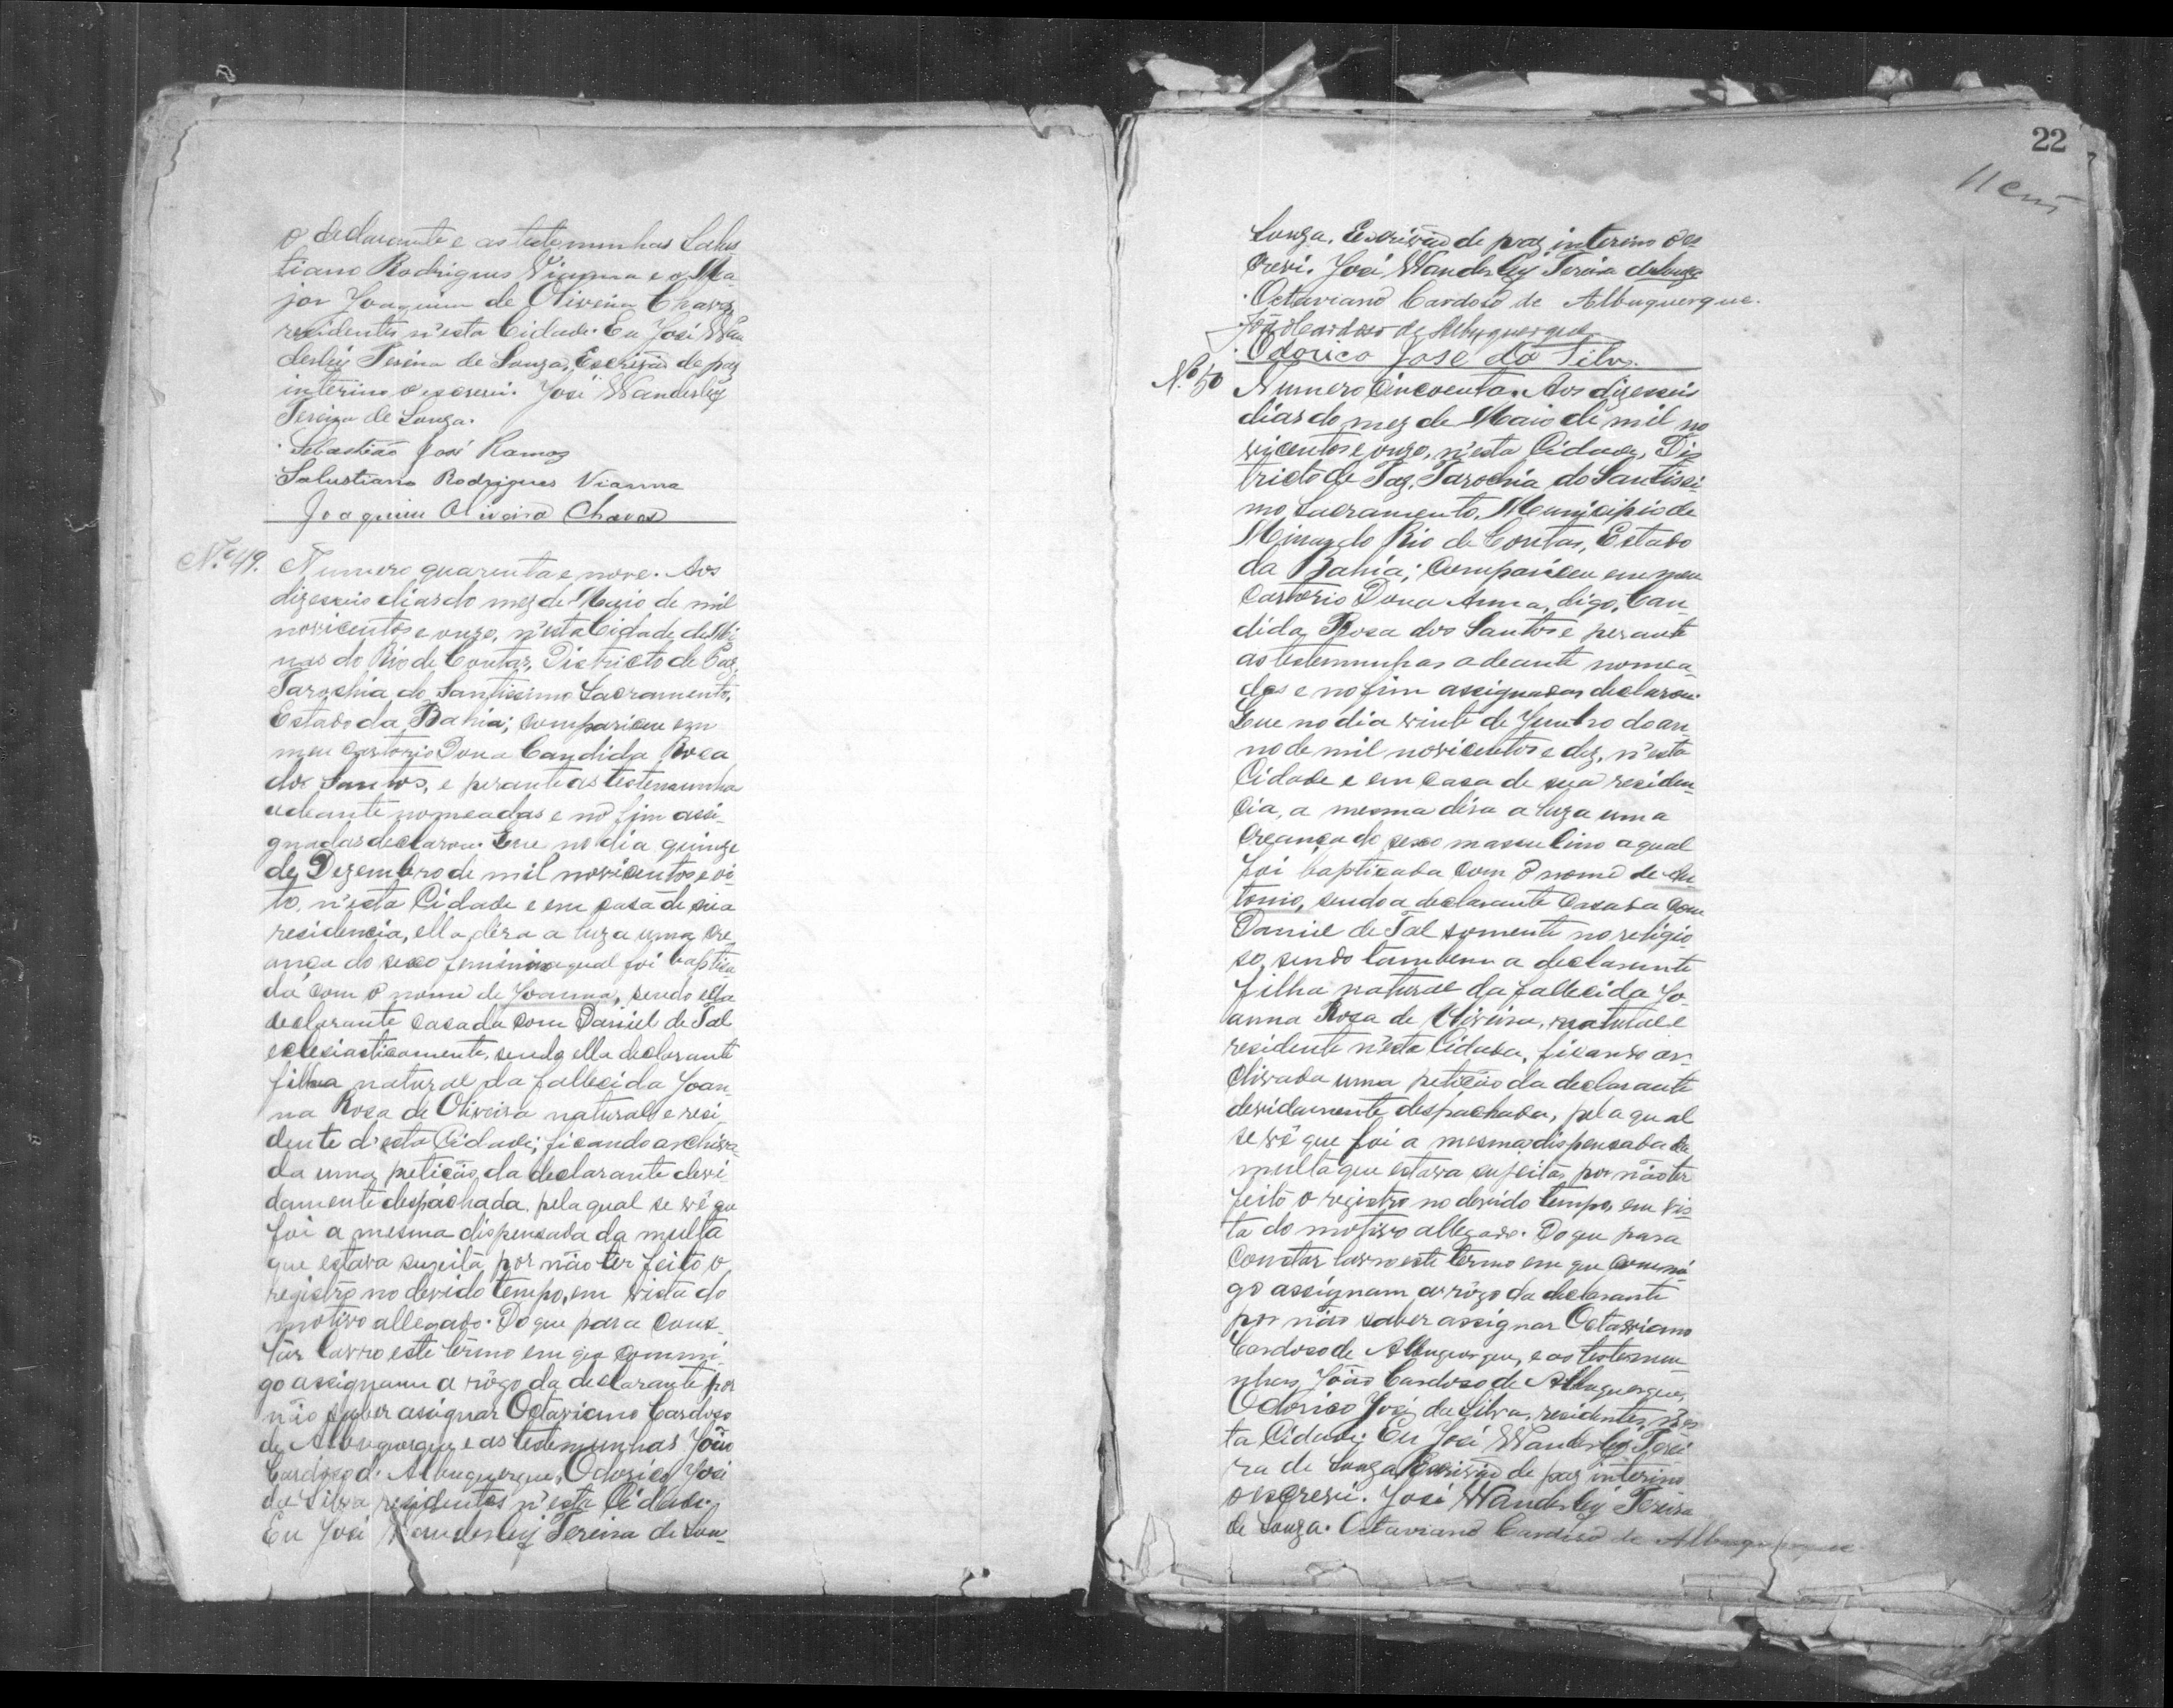 o declarante e as testemunhas Salus
tiano Rodrigues Vianna e o Ma-
jor Joaquim de Oliveira Chaves,
residentes n'esta Cidade. Eu José Wan
derley Pereira de Souza, Escrivão de paz
interino o escrevi. José Wanderley
Pereira de Souza.
Sebastião José Ramos
Salustiano Rodrigues Vianna
Joaquim Oliveira Chaves
Nº 49. Numero quarenta e nove. Aos
dizeseis dias do mez de Maio de mil
novicentos e onze, n'esta Cidade de Mi
nas do Rio de Contas, Districto de Paz,
Parochia do Santissimo Sacramento,
Estado da Bahia; compariceu em
meu cartorio Dona Candida Rosa
dos Santos, e perante as testemunha
adeante nomeadas e no fim assi-
gnadas declarou. Que no dia quinze
de Dezembro de mil novicentos e oi-
to, n'esta Cidade e em casa de sua
residencia, ella déra a luz a uma cre
ança do sexo feminino a qual foi baptisa
da com o nome de Joanna, sendo ella
declarante casada com Daniel de Tal
eclesiasticamente, sendo ella declarante
filha natural da fallecida Joan-
na Rosa de Oliveira natural e resi-
dente d'esta Cidade; ficando archiva
da uma petição da declarante devi-
damente despachada, pela qual se vê que
foi a mesma dispensada da multa
que estava sugeita, por não ter feito o
registro no devido tempo, em vista do
motivo allegado. Do que para cons-
tar lavro este termo em que commi-
go assignam a rôgo da declarante por
não saber assignar Octaviano Cardoso
de Albuquerque e as testemunhas João
Cardoso d' Albuquerque, Odorico José
da Silva residentes n'esta Cidade.
Eu José Wanderley Pereira de Sou-
22
Souza, Escrivão de paz interino o es
crevi. José Wanderley Pereira de Souza
Octaviano Cardoso de Albuquerque.
João Cardoso de Albuquerque
Odorico José da Silva.
Nº 50 Numero Cincoenta. Aos dizeseis
dias do mez de Maio de mil no
vicentos e onze, n'esta Cidade, Dis
tricto de Paz, Parochia do Santissi-
mo Sacramento, Municipio de
Minas do Rio de Contas, Estado
da Bahia; compariceu em meu
Cartorio Dona Anna, digo, Can-
dida Rosa dos Santos e perante
as testemunhas adeante nomea-
das e no fim assignadas declarou.
Que no dia vinte de Junho do an-
no de mil novicentos e dez, n'esta
Cidade e em casa de sua residen-
cia, a mesma déra a luz a uma
creança do sexo masculino a qual
foi baptisada com o nome de An-
tonio, sendo a declarante casada com
Daniel de Tal somente no religio-
so, sendo tambem a declarante
filha natural da fallecida Jo-
anna Rosa de Oliveira, natural e
residente n'esta Cidade, ficando ar-
chivada uma petição da declarante
devidamente despachada, pela qual
se vê que foi a mesma dispensada da
multa que estava sujeita, por não ter
feito o registro no devido tempo, em vis-
ta do motivo allegado. Do que para
constar lavro este termo em que commi-
go assignam a rôgo da declarante
por não saber assignar Octaviano
Cardoso de Albuquerque, e as testemu-
nhas João Cardoso de Albuquerque,
Odorico José da Silva, residentes n'es-
ta Cidade. Eu José Wanderley Perei-
ra de Souza Escrivão de paz interino
o escrevi. José Wanderley Pereira
de Souza. Octaviano Cardoso de Albuquerque